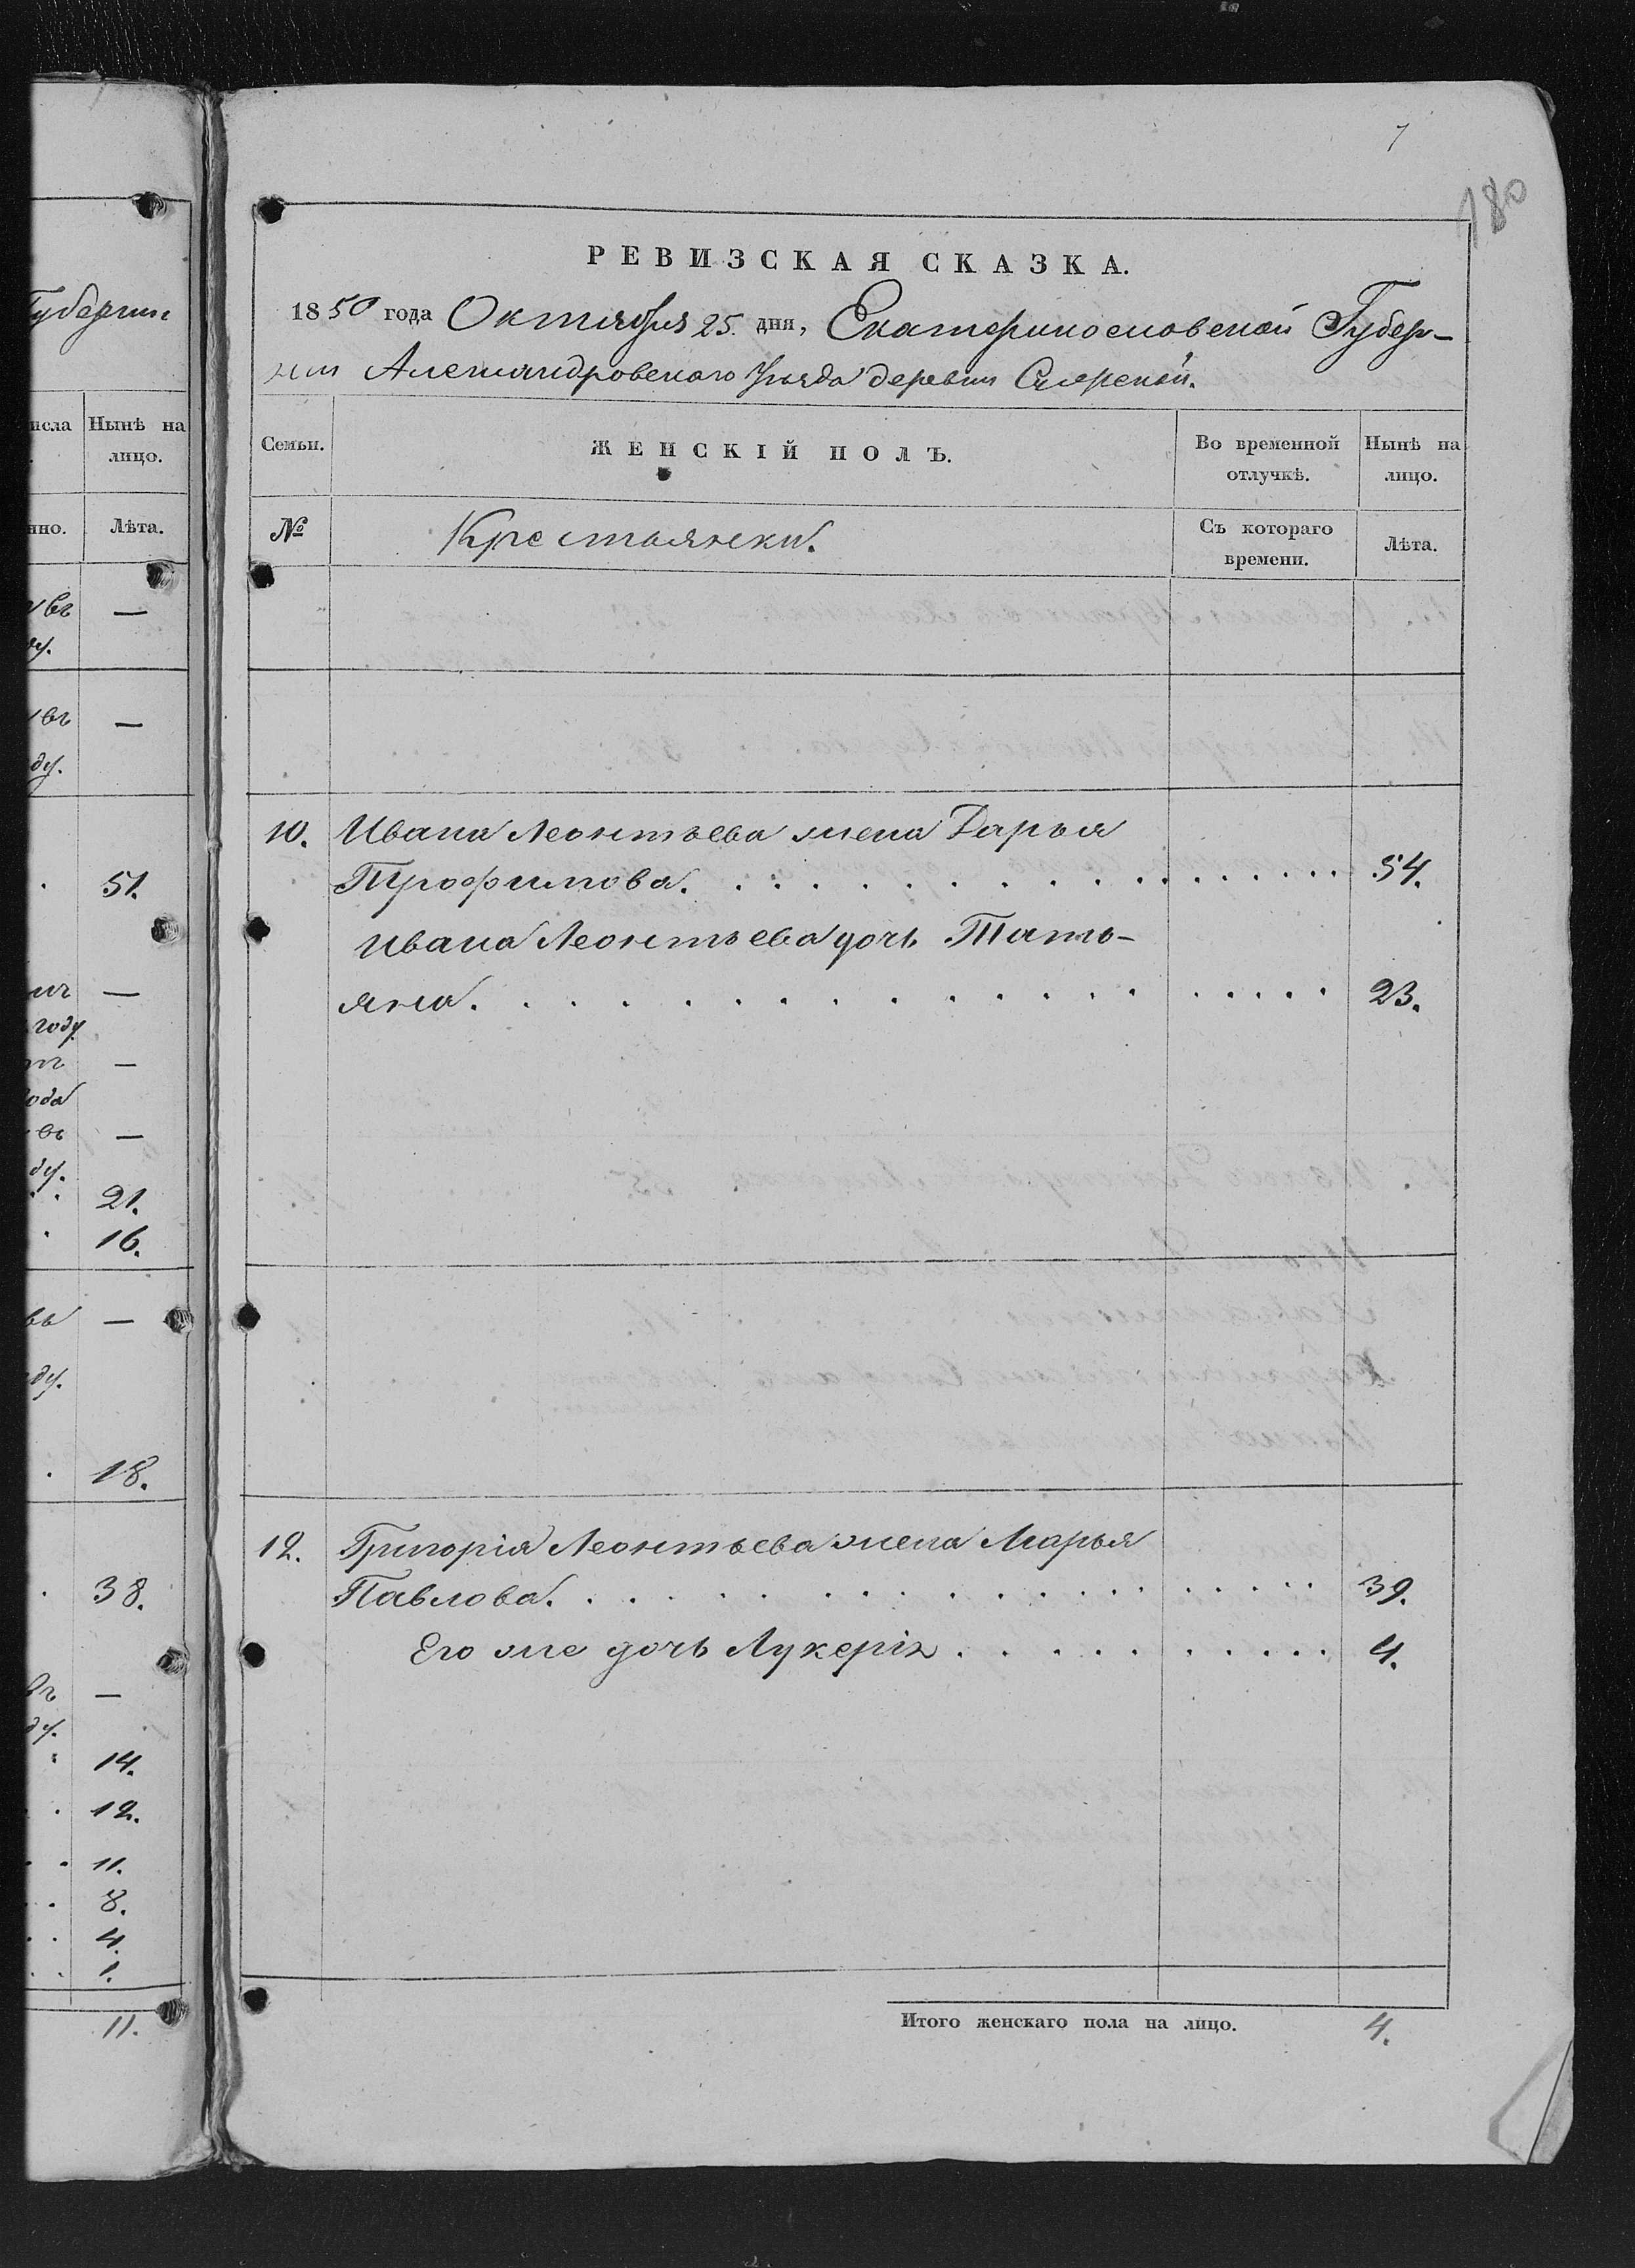 Губерніи
числа
Нынѣ на
лицо.
нно.
Лѣта.
въ —
ду.
въ —
ду.
51.
—
году
—
года
въ —
ду.
21.
16.
—
ду.
18.
38.
въ —
ду.
14.
12.
11.
8.
4.
1.
11.
7
180
РЕВИЗСКАЯ СКАЗКА.
1850 года Октября 25. дня, Екатеринославской Губер-
ніи Александровскаго Уѣзда деревни
Семьи.
ЖЕНСКІЙ ПОЛЪ.
Во временной
отлучкѣ.
Нынѣ на
лицо.
№
Крестьянки.
Съ котораго
времени.
Лѣта.
10. Ивана Леонтьева жена Дарья
Трофимова. 54.
Ивана Леонтьева дочь Тать-
яна. 23.
12. Григорія Леонтьева жена Марья
Павлова. 39.
Его же дочь Лукерія 4.
Итого женскаго пола на лицо. 4.